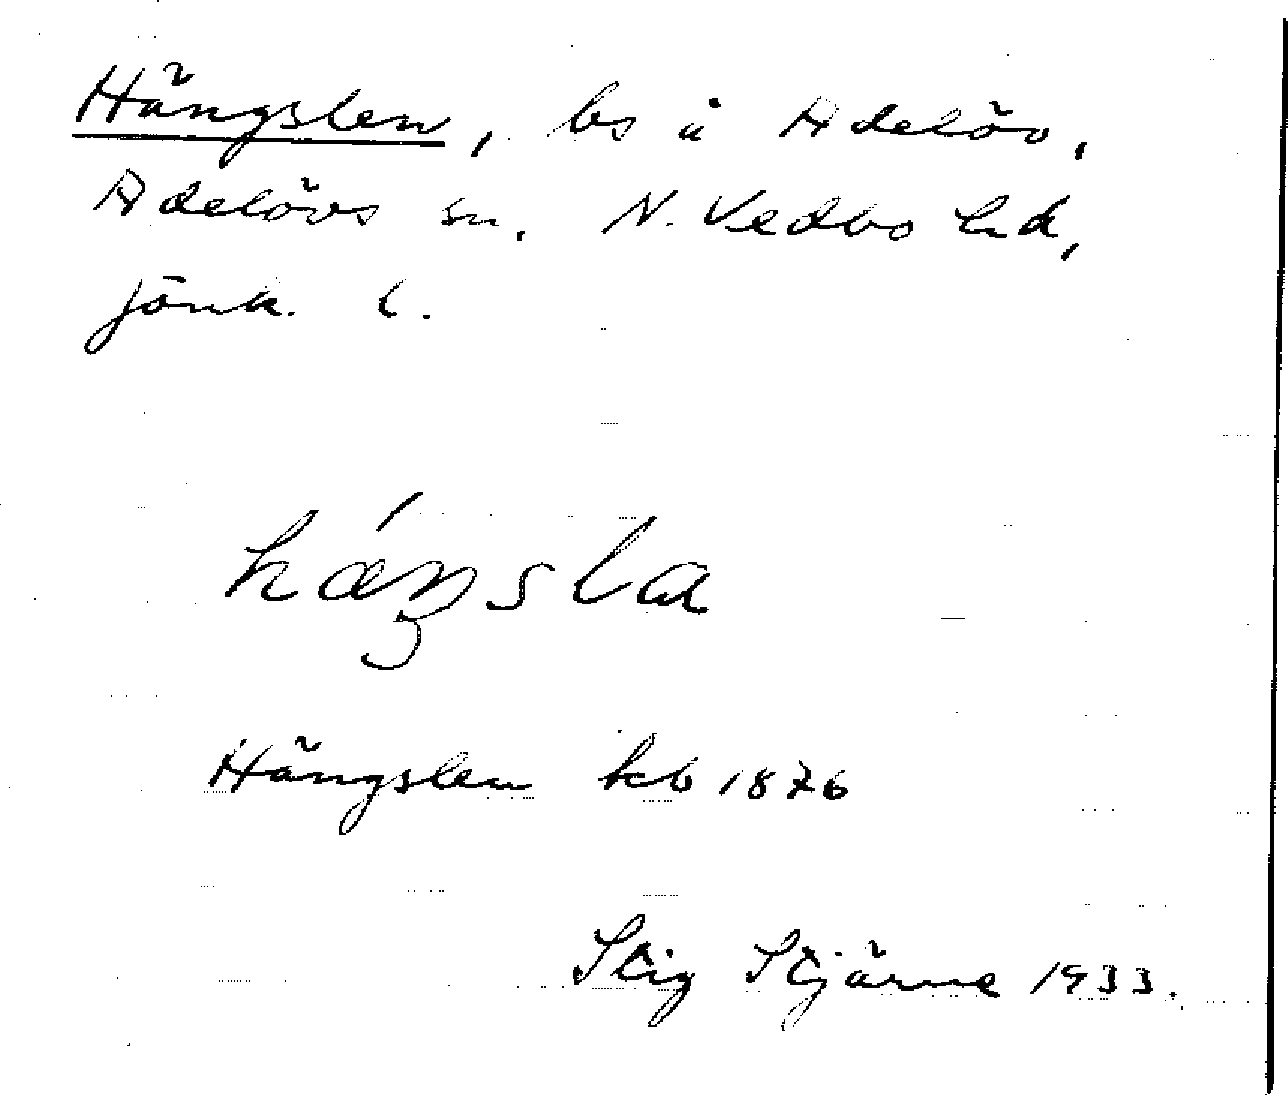 Hängslen, bs å Adelöv,
Adelövs sn. N. Vedbo hd,
Jönk. l.
hǽŋsla
Hängslen kb 1876
Stig Stjärne 1933.